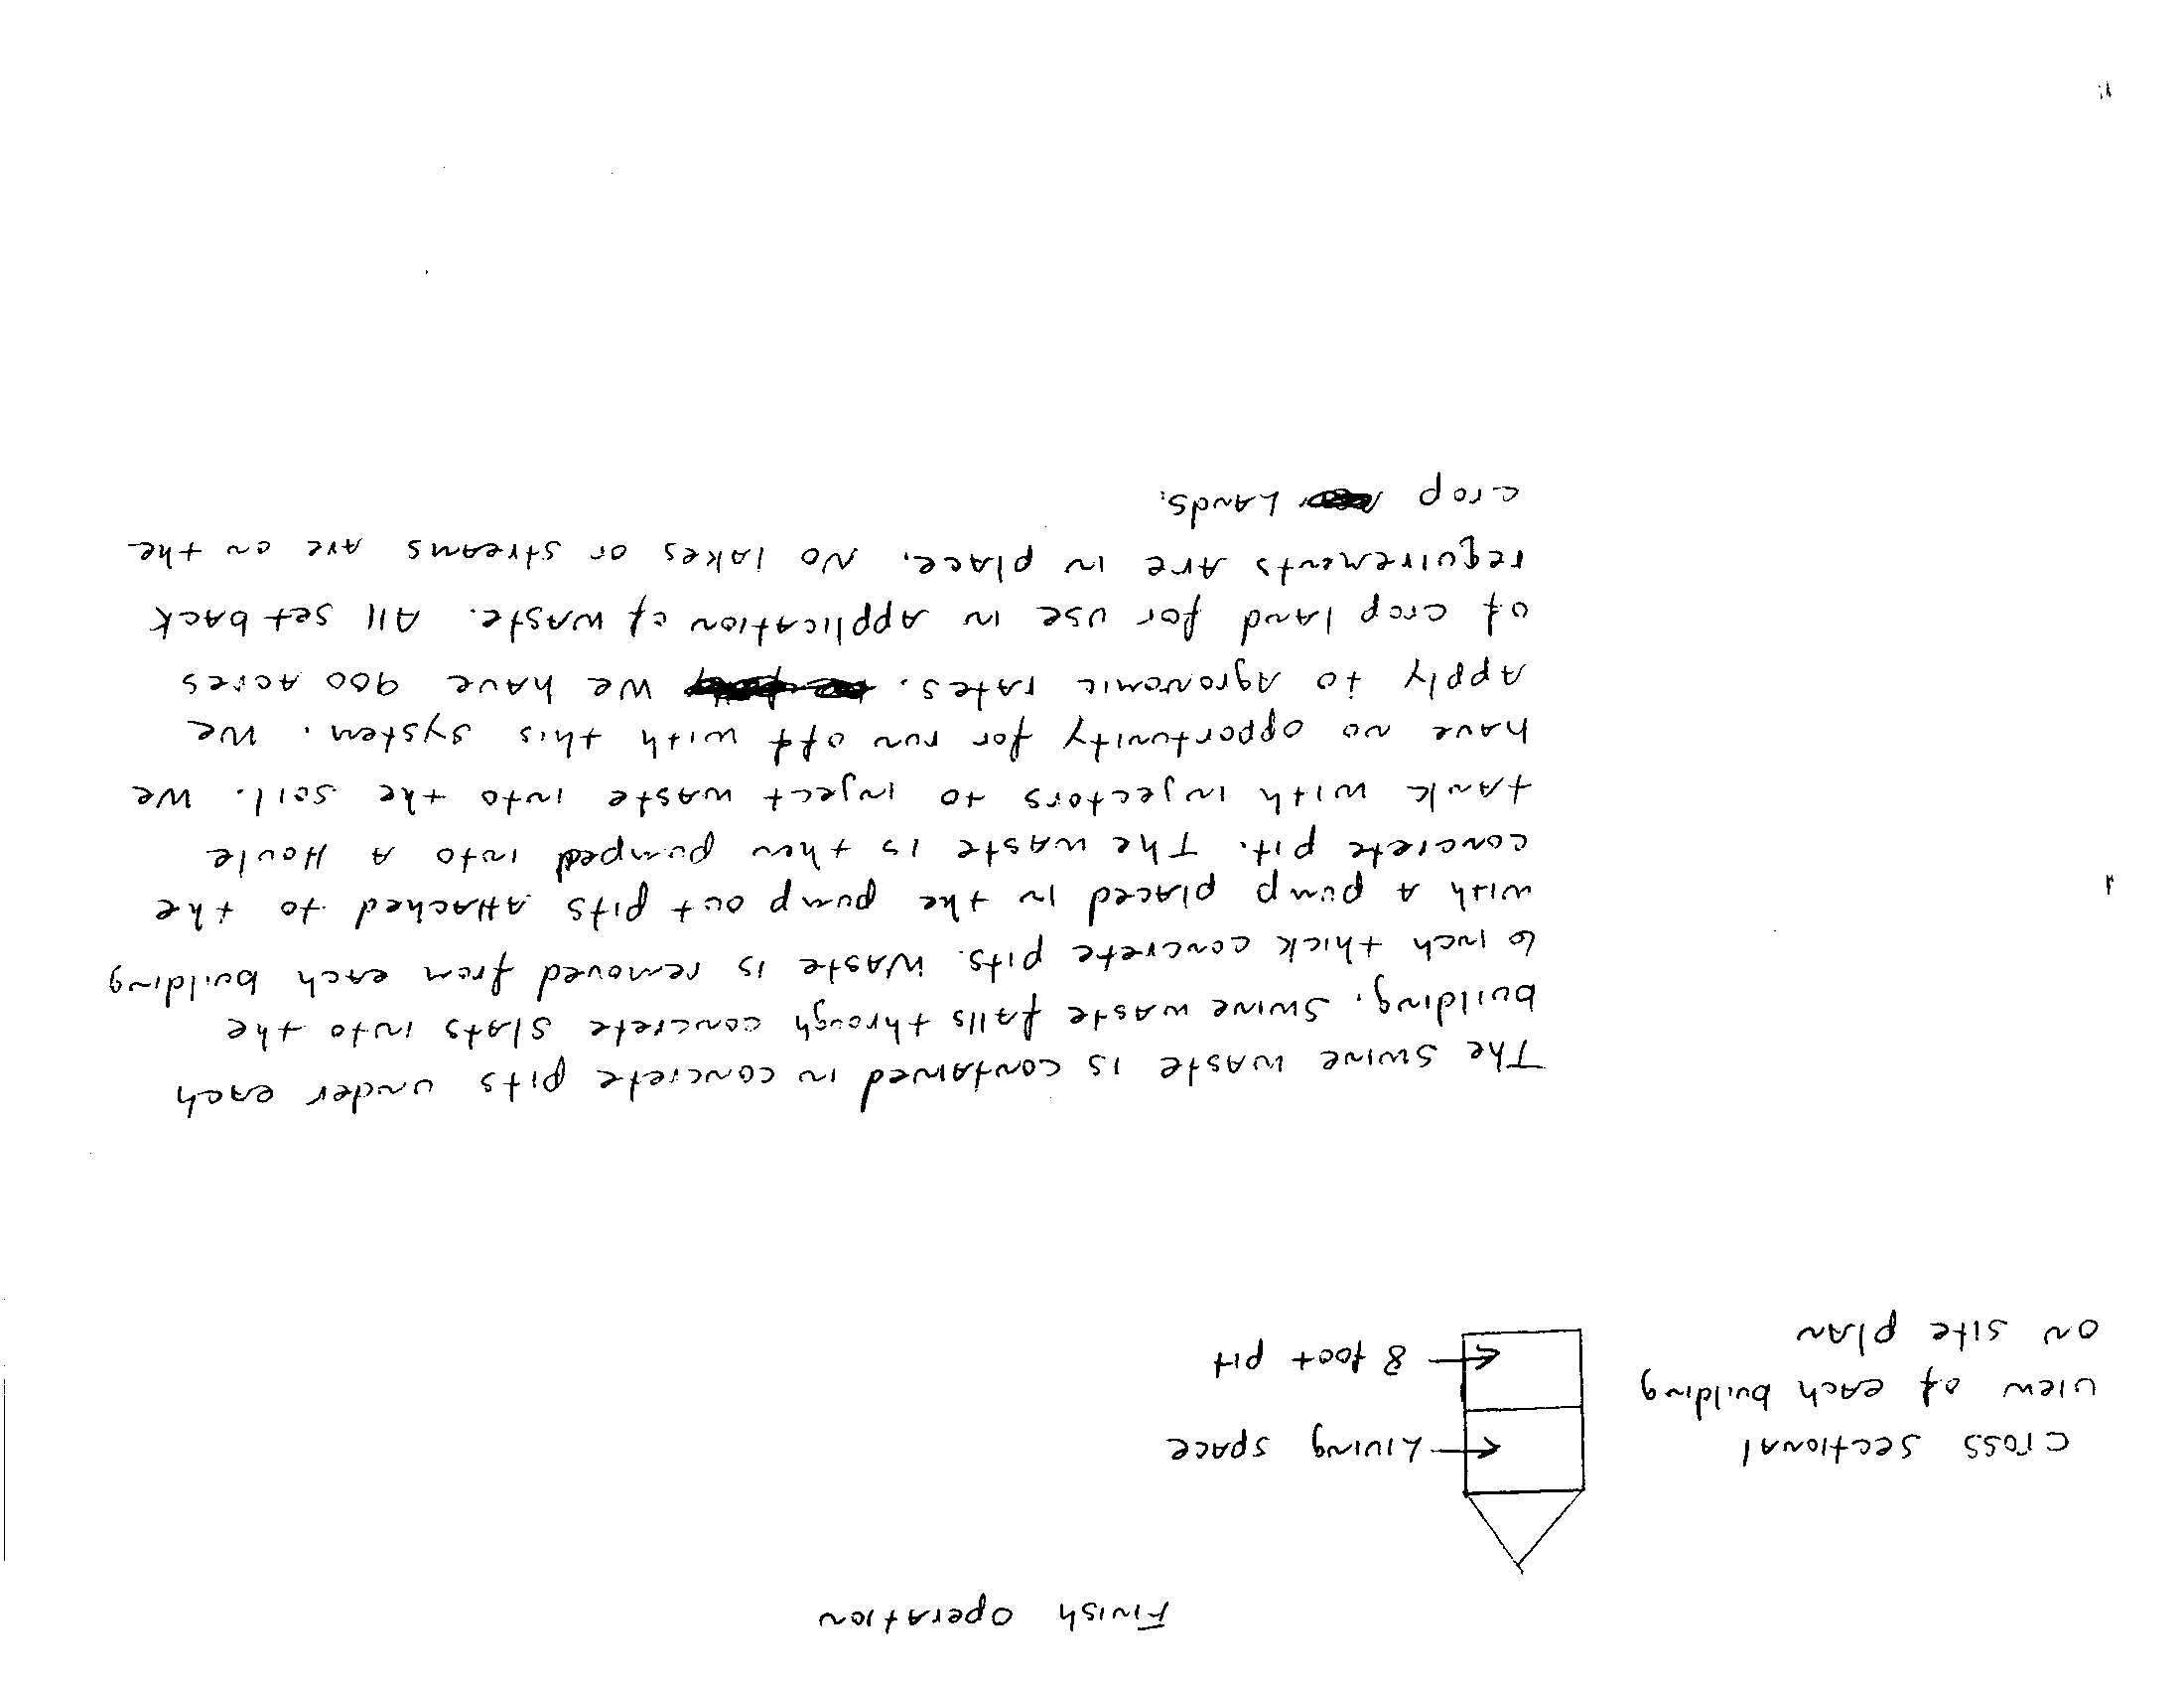 Finish Operation
cross sectional
view of each building
on site plan
Living space
8 foot pit
The swine waste is contained in concrete pits under each
building. Swine waste falls through concrete slats into the
6 inch thick concrete pits. Waste is removed from each building
with a pump placed in the pump out pits attached to the
concrete pit. The waste is then pumped into a Houle
tank with injectors to inject waste into the soil. We
have no opportunity for run off with this system. We
apply to agronomic rates. We have 900 acres
of crop land for use in application of waste. All set back
requirements are in place. No lakes or streams are on the
crop Lands.